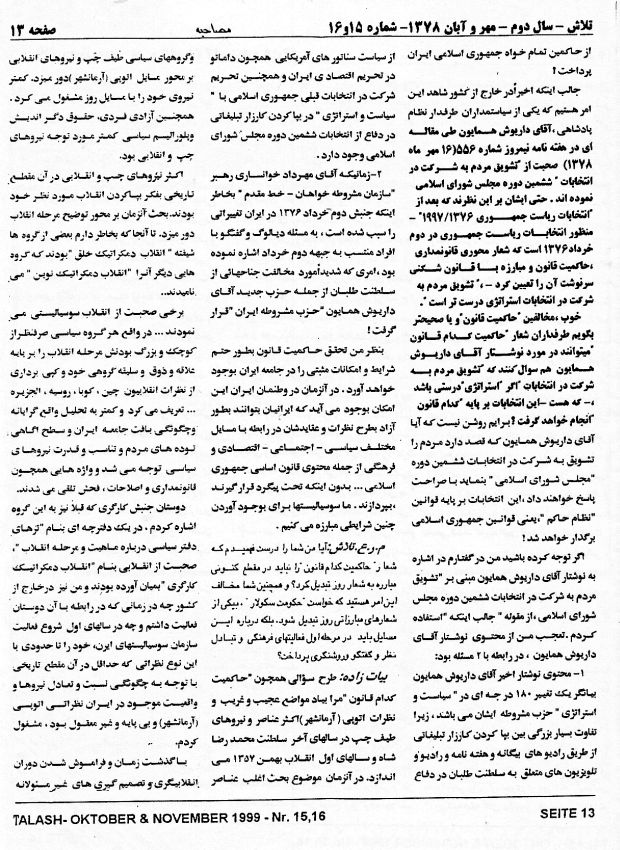 تلاش - سال دوم - مهر و آبان ۱۳۷۸- شماره ۱۵و۱۶
مصاحبه
صفحه ۱۳
از حاکمین تمام خواه جمهوری اسلامی ایران
پرداخت!
جالب اینکه اخیراً در خارج از کشور شاهد این
امر هستیم که یکی از سیاستمداران طرفدار نظام
پادشاهی ،آقای داریوش همایون طی مقاله
ای در هفته نامه نیمروز شماره ۵۵۶(۱۶ مهر ماه
۱۳۷۸) صحبت از "تشویق مردم به شرکت در
انتخابات " ششمین دوره مجلس شورای اسلامی
نموده اند . حتی ایشان بر این نظرند که بعد از
"انتخابات ریاست جمهوری ۱۳۷۶/۱۹۹۷" -
منظور انتخابات ریاست جمهوری در دوم
خرداد۱۳۷۶ است که شعار محوری قانونمداری
،حاکمیت قانون و مبارزه با قانون شکنی
سرنوشت آن را تعیین کرد - ،" تشویق مردم به
شرکت در انتخابات استراتژی درست تر است ".
خوب ،مخالفین "حاکمیت قانون" و یا صحیحتر
بگویم طرفداران شعار "حاکمیت کدام قانون
"میتوانند در مورد نوشتار آقای داریوش
همایون هم سوال کنند که "تشویق مردم به
شرکت در انتخابات "اگر "استراتژی"درستی باشد
،- که هست -این انتخابات بر پایه "کدام قانون
"انجام خواهد گرفت؟ برایم روشن نیست که آیا
آقای داریوش همایون که قصد دارد مردم را
تشویق به شرکت در انتخابات ششمین دوره
"مجلس شورای اسلامی " بنماید با صراحت
پاسخ خواهند داد ،این انتخابات بر پایه قوانین
"نظام حاکم "،یعنی قوانین جمهوری اسلامی
برگذار خواهد شد!
اگر توجه کرده باشید من در گفتارم در اشاره
به نوشتار آقای داریوش همایون مبنی بر "تشویق
مردم به شرکت در انتخابات ششمین دوره مجلس
شورای اسلامی ،از مقوله " جالب اینکه "استفاده
کردم .تعجب من از محتوی نوشتار آقای
داریوش همایون ، در رابطه با ۲ مسئله بود:
۱- محتوی نوشتار اخیر آقای داریوش همایون
بیانگر یک تغییر ۱۸۰ در جه ای در " سیاست و
استراتژی " حزب مشروطه ایشان می باشد ، زیرا
تفاوت بسیار بزرگی بین بپا کردن کارزار تبلیغاتی
از طریق رادیو های بیگانه و هفته نامه و رادیوو
تلویزیون های متعلق به سلطنت طلبان در دفاع
از سیاست سناتور های آمریکایی همچون داماتو
در تحریم اقتصادی ایران و همچنین تحریم
شرکت در انتخابات قبلی جمهوری اسلامی با "
سیاست و استراتژی " در بپا کردن کارزار تبلیغاتی
در دفاع از انتخابات ششمین دوره مجلس شورای
اسلامی وجود دارد .
۲-زمانیکه آقای مهرداد خوانساری رهبر
"سازمان مشروطه خواهان - خط مقدم " بخاطر
اینکه جنبش دوم خرداد ۱۳۷۶ در ایران تغییراتی
را سبب شده است ، به مسئله دیالوگ و گفتگو با
افراد منتسب به جبهه دوم خرداد اشاره نموده
بود ،امری که شدیداًمورد مخالفت جناحهائی از
سلطنت طلبان از جمله حزب جدید آقای
داریوش همایون "حزب مشروطه ایران " قرار
گرفت!
بنظر من تحقق حاکمیت قانون بطور حتم
شرایط و امکانات مثبتی را در جامعه ایران بوجود
خواهد آورد . در آنزمان در وطنمان ایران این
امکان بوجود می آید که ایرانیان بتوانند بطور
آزاد بطرح نظرات و عقایدشان در رابطه با مسایل
مختلف سیاسی - اجتماعی - اقتصادی و
فرهنگی از جمله محتوی قانون اساسی جمهوری
اسلامی ... بدون اینکه تحت پیگرد قرار گیرند
،بپردازند . ما سوسیالیستها برای بوجود آوردن
چنین شرایطی مبارزه می کنیم .
م.و.ع.تلاش: آیا من شما را درست فهمیدم که
شعار "حاکمیت کدام قانون را نباید در مقطع کنونی
مبارزه به شعار روز تبدیل کرد؟ و همچنین شما مخالف
این امر هستید که خواست "حکومت سکولار "، بیکی از
شعارهای مبارزاتی روز تبدیل شود . بلکه درباره این
مسایل باید در مرحله اول فعالیتهای فرهنگی و تبادل
نظر و گفتگو و روشنگری پرداخت؟
بیات زاده: طرح سؤالی همچون "حاکمیت
کدام قانون " مرا بیاد مواضع عجیب و غریب و
نظرات اتوپی (آرمانشهر) اکثر عناصر و نیروهای
طیف چپ در سالهای آخر سلطنت محمد رضا
شاه و سالهای اول انقلاب بهمن ۱۳۵۷ می
اندازد . در آنزمان موضوع بحث اغلب عناصر
وگروههای سیاسی طیف چپ و نیروهای انقلابی
بر محور مسایل اتوپی (آرمانشهر) دور میزد . کمتر
نیروی خود را با مسایل روز مشغول می کرد .
همچنین آزادی فردی ، حقوق دگر اندیش و
پلورالیسم سیاسی کمتر مورد توجه نیروهای
چپ و انقلابی بود.
اکثر نیروهای چپ و انقلابی در آن مقطع
تاریخی بفکر بپاکردن انقلاب مورد نظر خود
بودند . بحث آنزمان بر محور توضیح مرحله انقلاب
دور میزد . تا آنجا که بخاطر دارم بعضی از گروه ها
شیفته " انقلاب دمکراتیک خلق "بودند که گروه
هایی دیگر آنرا "انقلاب دمکراتیک نوین " می
نامیدند ..
برخی صحبت از انقلاب سوسیالیستی می
نمودند ... در واقع هر گروه سیاسی صرفنظر از
کوچک و بزرگ بودنش مرحله انقلاب را بر پایه
علاقه و ذوق و سلیقه گروهی خود و کپی برداری
از نظرات انقلابیون چین ، کوبا ، روسیه ، الجزیره
... تعریف می کرد و کمتر به تحلیل واقع گرایانه
وچگونگی بافت جامعه ایران و سطح آگاهی
توده های مردم و تناسب و قدرت نیروهای
سیاسی توجه می شد و واژه هایی همچون
قانونمداری و اصلاحات ، فحش تلقی می شدند.
دوستان جنبش کارگری که قبلاً نیز به این گروه
اشاره کردم ، در یک دفترچه ای بنام "تزهای
دفتر سیاسی درباره ماهیت و مرحله انقلاب "،
صحبت از انقلابی بنام "انقلاب دمکراتیک
کارگری "بمیان آورده بودند و من نیز در خارج از
کشور چه در زمانی که در رابطه با آن دوستان
فعالیت داشتم و چه در سالهای اول شروع فعالیت
سازمان سوسیالیستهای ایرن، خود را تا حدودی با
این نوع نظراتی که حداقل در آن مقطع تاریخی
با توجه به چگونگی نسبت و تعادل نیروها و
واقعیت موجود در ایران نظراتی اتوپی
(آرمانشهر) و بی پایه و غیر معقول بود ، مشغول
کردم.
با گذشت زمان و فراموش شدن دوران
انقلابیگری و تصمیم گیری های غیر مسئولانه
TALASH- OKTOBER & NOVEMBER 1999 - Nr. 15,16
SEITE 13